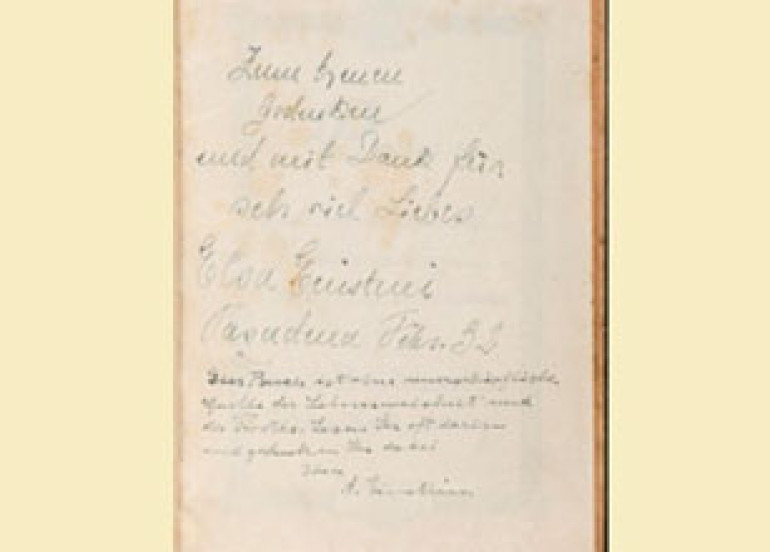 Zum treuen
Gedenken
und mit Dank für
sehr viel Liebes
Elsa Einstein
Pasadena Febr. 32
Dies Buch ist eine unerschöpfliche
Quelle der Lebensweisheit und
des Trostes. Lesen Sie oft darin
und gedenken Sie dabei
Ihres
A. Einstein.